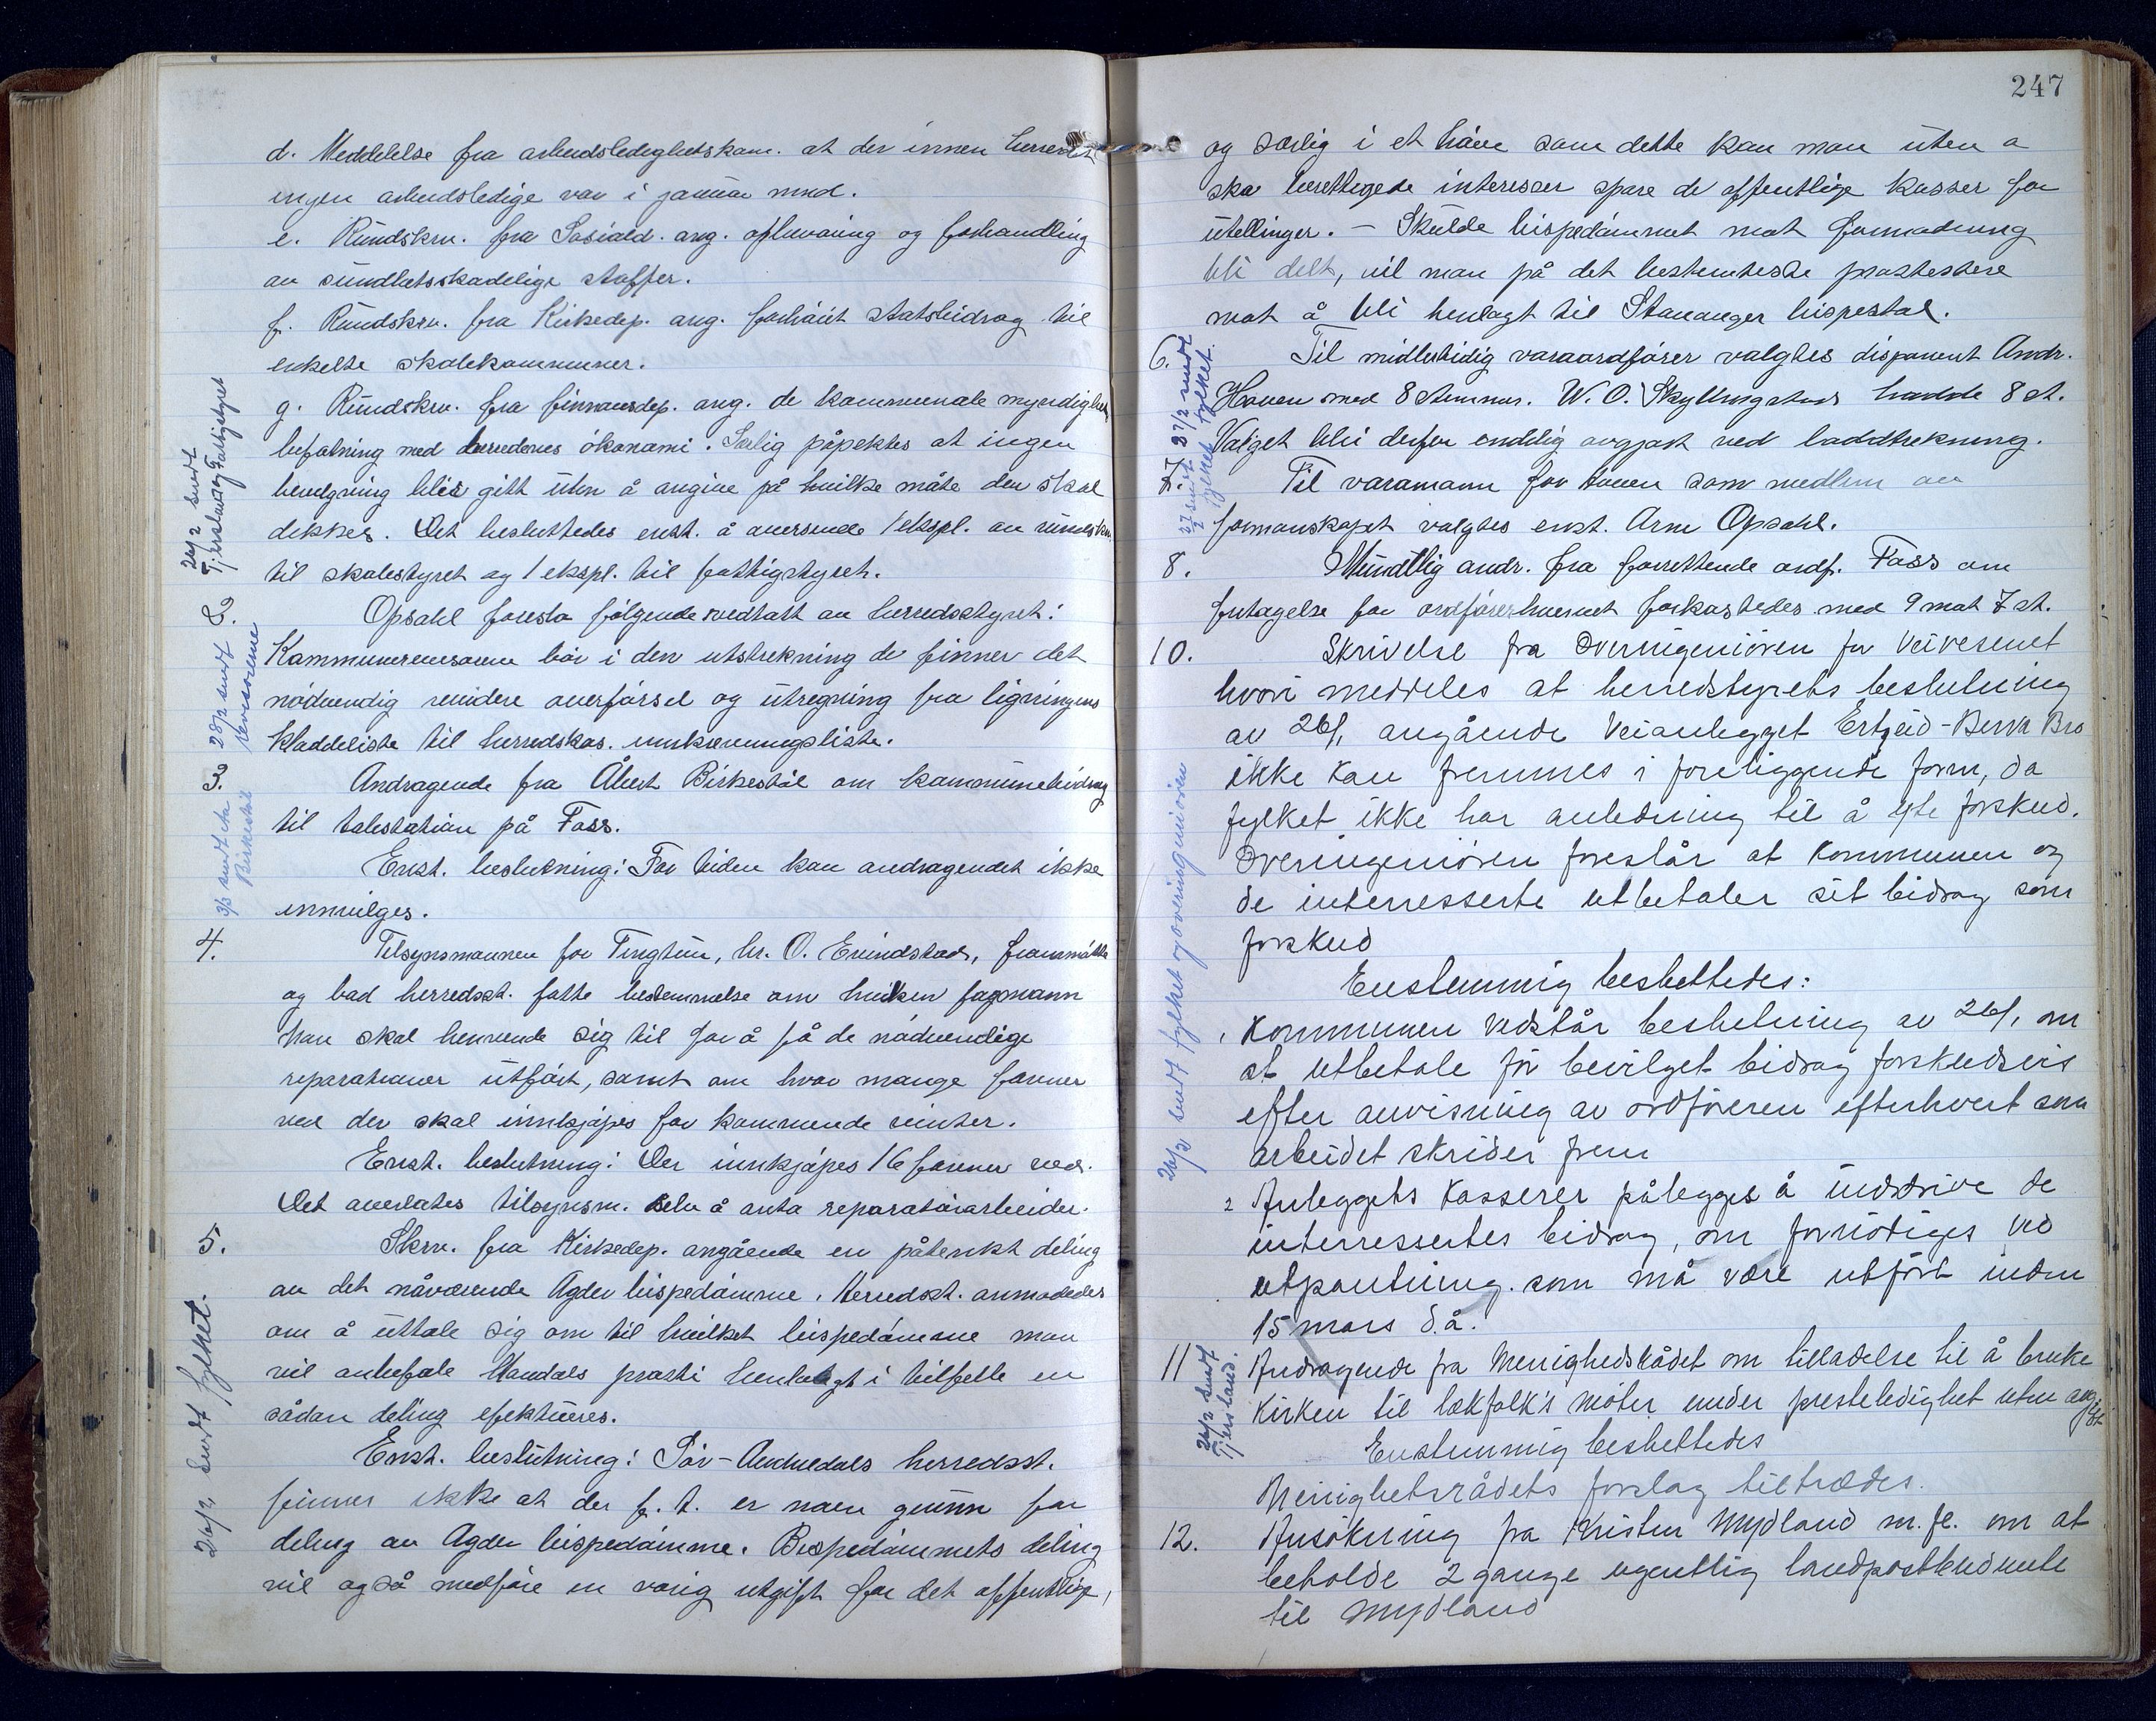 d. Meddelelse fra arbeidsledighetskom. at der innen herredet
ingen arbeidsledige var i januar mnd.
e. Rundskr. fra Sosiald. ang. opbevaring og forhandling
av sundhetsskadelige stoffer.
f. Rundskr. fra Kirkedep. ang. forhöit statsbidrag til
enkelte skolekommuner.
g. Rundskr. fra finansdep. ang. de kommunale myndighets
befatning med herredenes ökonomi. Særlig påpektes at ingen
bevilgning blir gitt uten å angive på hvilke måte den skal
dekkes. Det besluttedes enst. å oversende 1 ekspl. av rundskr.
til skolestyret og 1 ekspl. til fattigstyret.
26/2 sendt
Tjersland og Fattigstyret
2.
Opsahl foreslo fölgende vedtatt av herredsstyret:
Kommunerevisorene bör i den utstrekning de finner det
nödvendig revidere overförsel og utregning fra ligningens
kladdeliste til herredskas. innkrevningsliste.
28/2 sendt
revisorene
3.
Andragende fra Åbert Birkestöl om kommunebidrag
til talestation på Foss.
Enst. beslutning: For tiden kan andragendet ikke
innvilges.
3/3 sendt
Birkestöl
4.
Tilsynsmannen for Tingtun, hr. O. Evindstad, frammötte
og bad herredsst. fatte bestemmelse om hvilken fagmann
han skal henvende sig til for å få de nödvendige
reparationer utfört, samt om hvor mange favner
ved der skal innkjöpes for kommende vinter.
Enst. beslutning: Der innkjöpes 16 favner ved.
Det overlates tilsynsm. selv å anta reparatörarbeider.
5.
Skrv. fra Kirkedep. angående en påtenkt deling
av det nåværende Agder bispedömme. Herredsst. anmodedes
om å uttale sig om til hvilket bispedömme man
vil anbefale Mandals prosti henlagt i tilfelle en
sådan deling efektueres.
Enst. beslutning: Sör-Audnedals herredsst.
finner ikke at der f. t. er noen grunn for
deling av Agder bispedömme. Bispedömmets deling
vil også medföre en varig utgift for det offentlige,
26/2 sendt fylket.
247
og særlig i et höve som dette kan man uten å
ska berettigede interesser spare de offentlige kasser for
utellinger. - Skulde bispedömmet mot formodning
bli delt, vil man på det bestemteste prostestere
mot å bli henlagt til Stavanger bispestol.
6.
Til midlertidig varaordförer valgtes disponent Andr.
Hoven med 8 stemmer. W. O. Skyllingstad hadde 8 st.
Valget blev derfor endelig avgjort ved loddtrekning.
27/2 sendt
fylket
7.
Til varamann for Hoven som medlem av
formanskapet valgtes enst. Arne Opsahl.
27/2 sendt
fylket
8.
Mundtlig andr. fra forrettende ordf. Foss om
fritagelse for ordförerhvervet forkastedes med 9 mot 7 st.
10.
Skrivelse fra Överingeniören for Veivesenet
hvori meddeles at herredstyrets beslutning
av 26/1 angående Veianlegget Ertzeid - Berva Bro
ikke kan fremmes i foreliggende form, da
fylket ikke har anledning til å yte forskud.
Överingeniören foreslår at kommunen og
de interresserte utbetaler sit bidrag som
forskud
Enstemmig besluttedes:
1 Kommunen vedstår beslutning av 26/1 om
at utbetale för bevilget bidrag forskudsvis
efter anvisning av ordföreren efterhvert som
arbeidet skrider frem
2 Anleggets kasserer pålegges å inddrive de
interressertes bidrag, om fornödiges ved
utpantning. som må være utfört inden
15 mars d.å.
26/2 sendt fylket og overingeniören
11
Andragende fra Menighedsrådet om tilladelse til å bruke
Kirken til lekfolk's möter under presteledighet uten avgift
Enstemmig besluttedes
Menighetsrådets forslag tiltrædes.
26/2 sendt
Tjersland.
12.
Ansökning fra Kristen Mydland m. fl. om at
beholde 2 gange ugentlig landpostbudrute
til Mydland